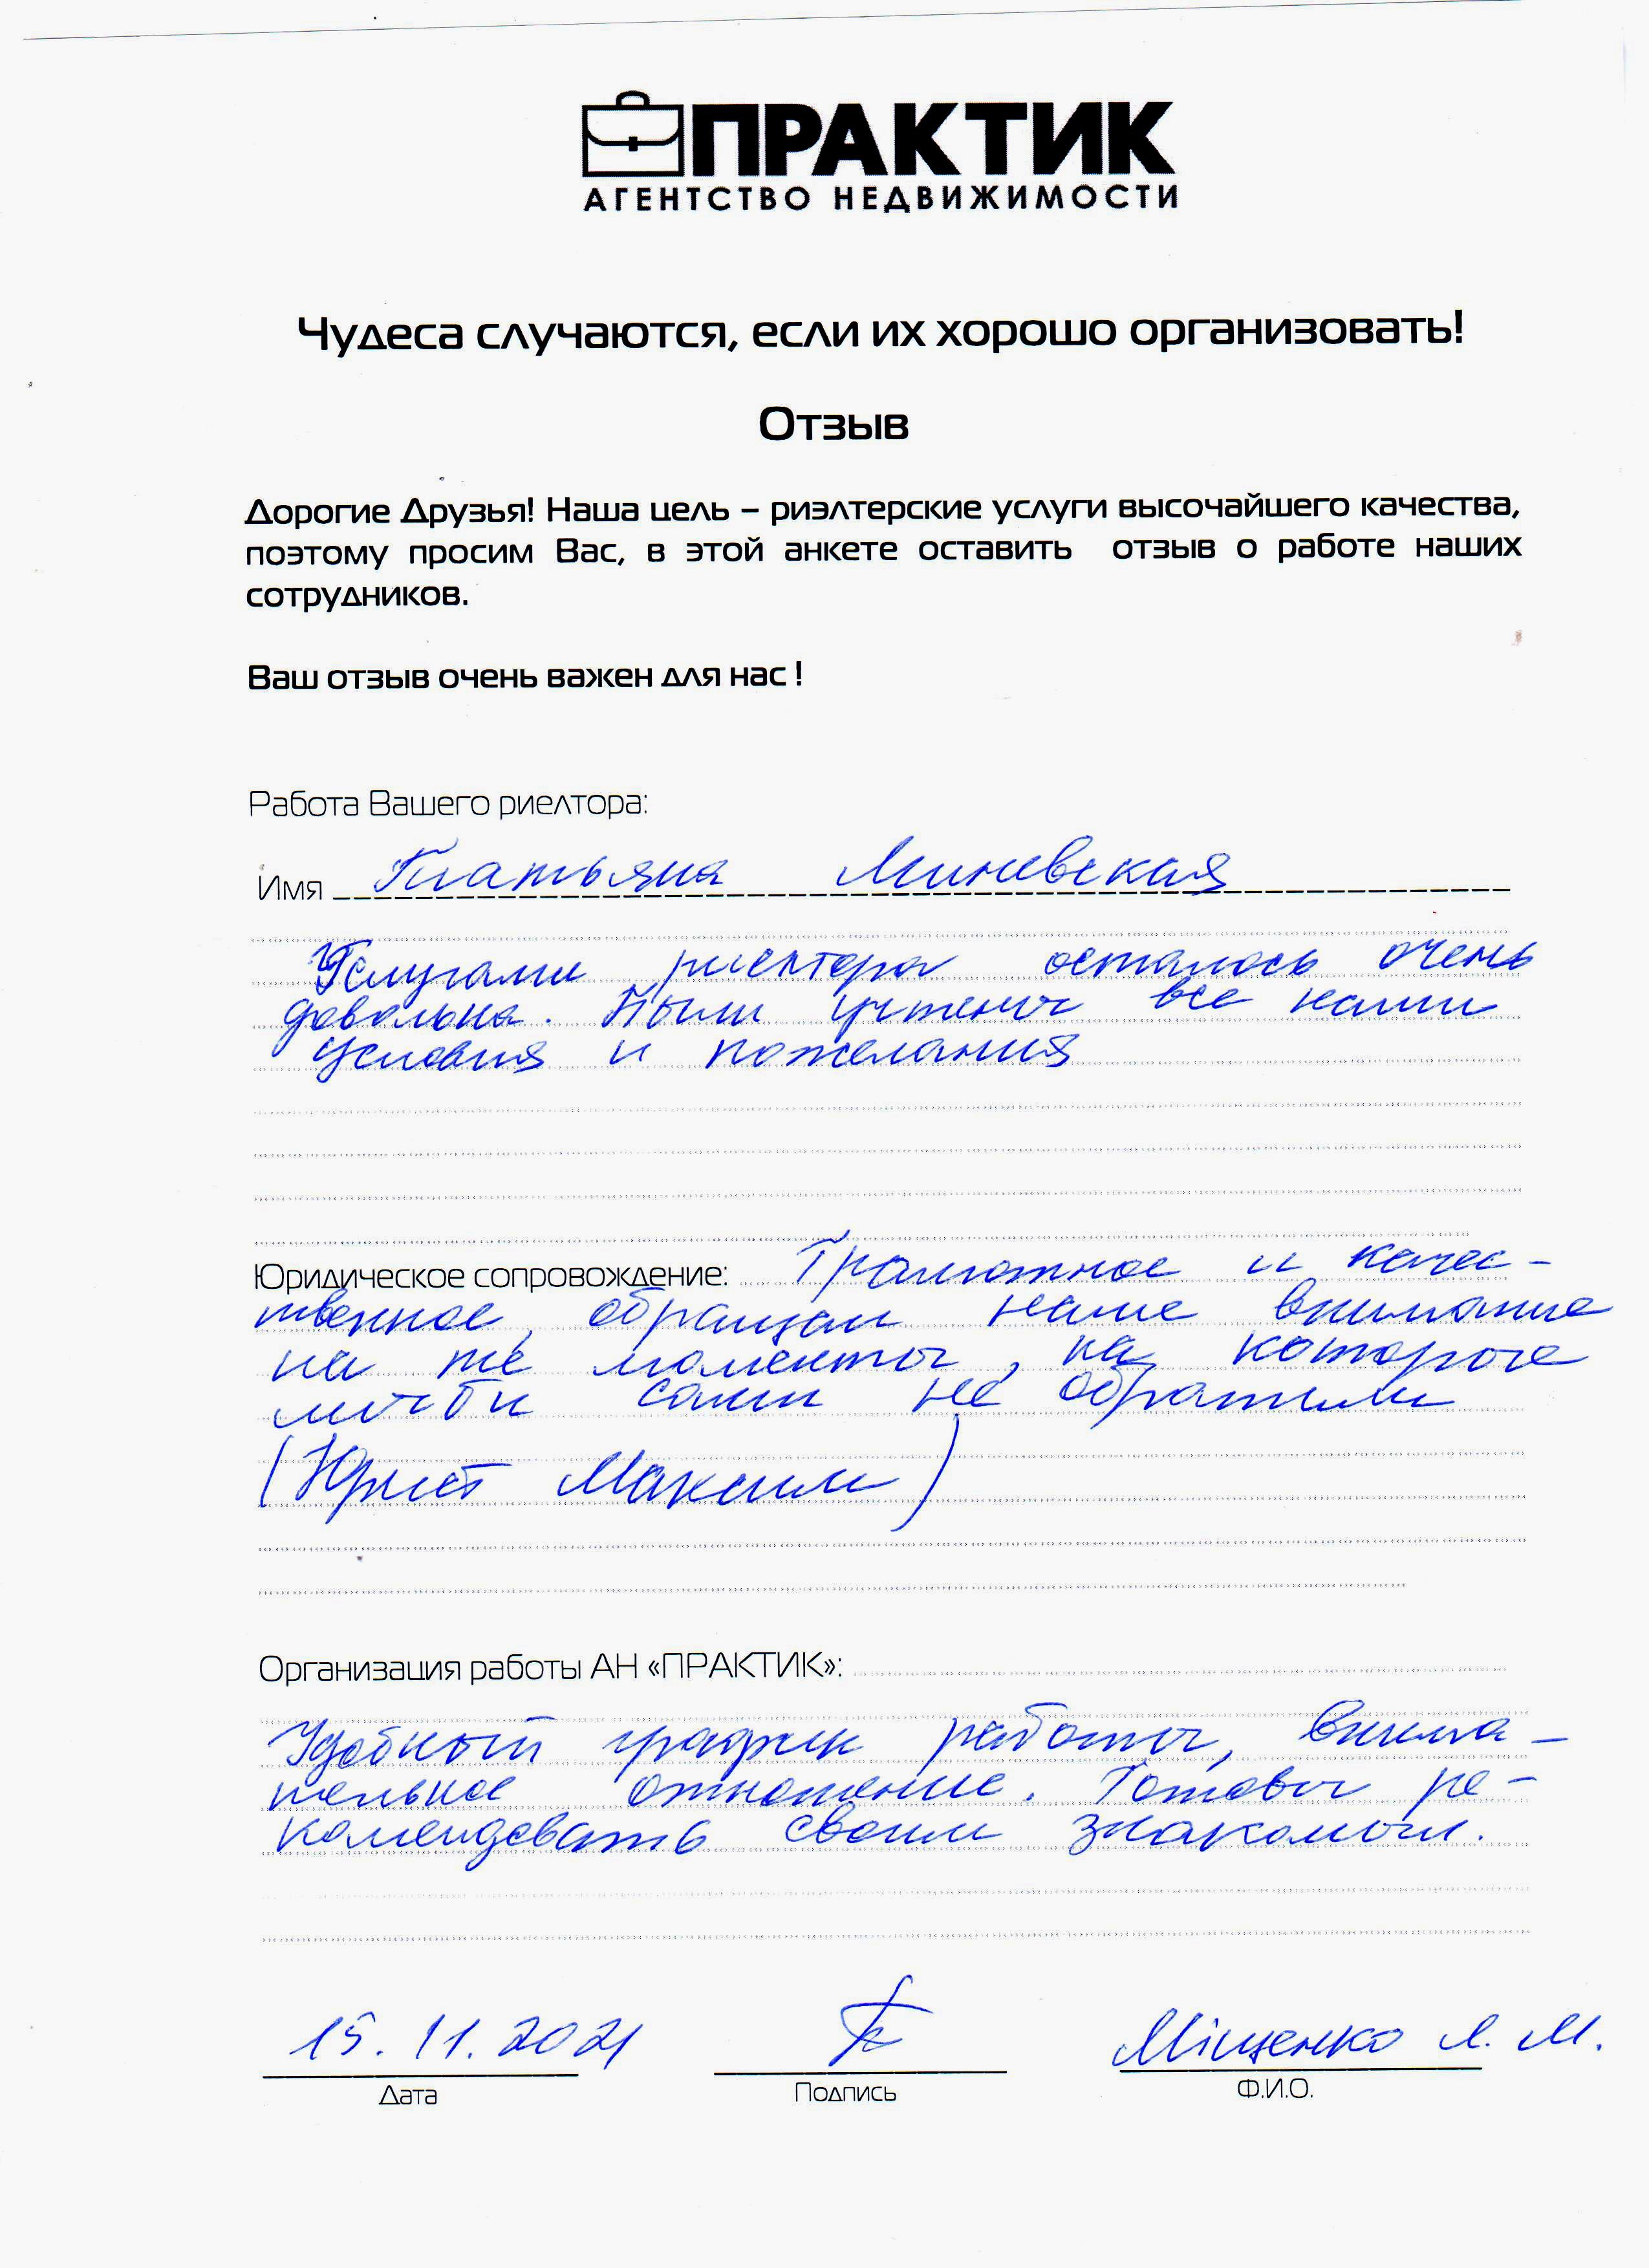 ПРАКТИК
АГЕНТСТВО НЕДВИЖИМОСТИ
Чудеса случаются, если их хорошо организовать!
Отзыв
Дорогие Друзья! Наша цель – риэлтерские услуги высочайшего качества,
поэтому просим Вас, в этой анкете оставить отзыв о работе наших
сотрудников.
Ваш отзыв очень важен для нас !
Работа Вашего риелтора:
Имя Татьяна Миневская
Услугами риелтора осталась очень
довольна. Были учтены все наши
условия и пожелания
Юридическое сопровождение: Грамотное и качес-
твенное, обращали наше внимание
на те моменты, на которые
мы бы сами не обратили
(Юрист Максим)
Организация работы АН «ПРАКТИК»:
Удобный график работы, внима-
тельное отношение. Готовы ре-
комендовать своим знакомым.
15.11.2021 Міщенко Л. М.
Дата Подпись Ф.И.О.